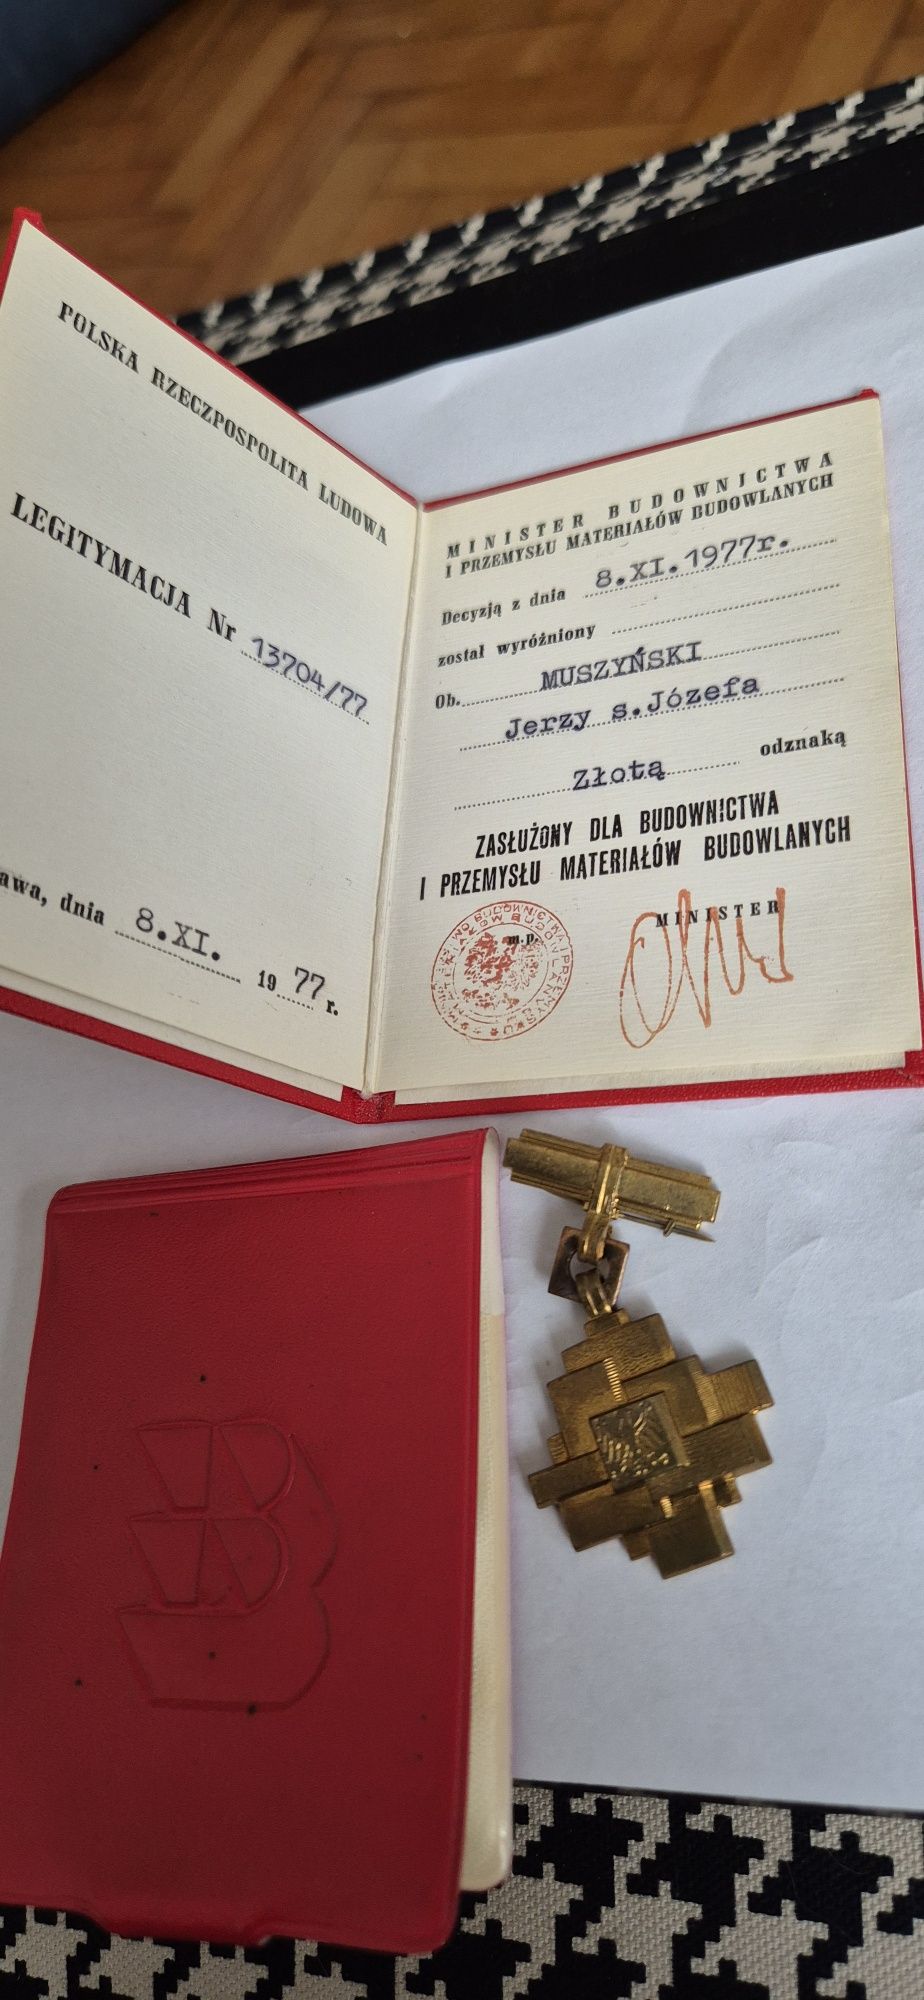 POLSKA RZECZPOSPOLITA LUDOWA
LEGITYMACJA Nr 13704/77
awa, dnia 8.XI. 1977 r.
MINISTER BUDOWNICTWA
I PRZEMYSŁU MATERIAŁÓW BUDOWLANYCH
Decyzją z dnia 8.XI.1977r.
został wyróżniony
Ob. MUSZYŃSKI
Jerzy s.Józefa
Złotą odznaką
ZASŁUŻONY DLA BUDOWNICTWA
I PRZEMYSŁU MATERIAŁÓW BUDOWLANYCH
m.p.
MINISTER